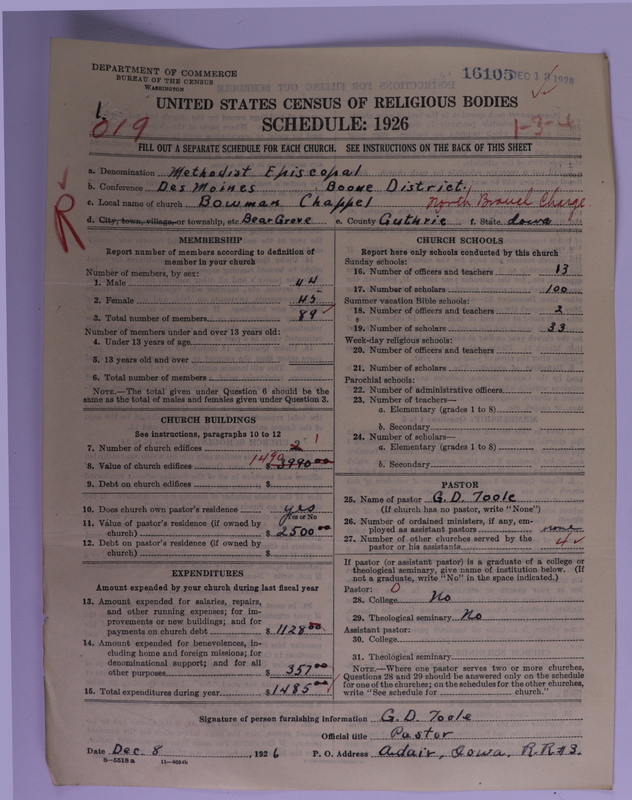 DEPARTMENT OF COMMERCE
BUREAU OF THE CENSUS
WASHINGTON
16105 DEC 13 1926
1.
019
UNITED STATES CENSUS OF RELIGIOUS BODIES
SCHEDULE: 1926
1-3-4
FILL OUT A SEPARATE SCHEDULE FOR EACH CHURCH. SEE INSTRUCTIONS ON THE BACK OF THIS SHEET
a. Denomination Methodist Episcopal
b. Conference Des Moines Boone District.
c. Local name of church Bowman Chappel North Branch Charge.
d. City, town, village, or township, etc. Bear Grove e. County Guthrie f. State Iowa
R
MEMBERSHIP
Report number of members according to definition of
member in your church
Number of members, by sex:
1. Male 44
2. Female 45
3. Total number of members 89
Number of members under and over 13 years old:
4. Under 13 years of age
5. 13 years old and over
6. Total number of members
NOTE.—The total given under Question 6 should be the
same as the total of males and females given under Question 3.
CHURCH BUILDINGS
See instructions, paragraphs 10 to 12
7. Number of church edifices 2 1
8. Value of church edifices $ 3990.00
9. Debt on church edifices $
10. Does church own pastor's residence yes
Yes or No
11. Value of pastor's residence (if owned by
church) $ 2500.00
12. Debt on pastor's residence (if owned by
church) $
EXPENDITURES
Amount expended by your church during last fiscal year
13. Amount expended for salaries, repairs,
and other running expenses; for im-
provements or new buildings; and for
payments on church debt $ 1128.00
14. Amount expended for benevolences, in-
cluding home and foreign missions; for
denominational support; and for all
other purposes $ 357.00
15. Total expenditures during year $ 1485.00
CHURCH SCHOOLS
Report here only schools conducted by this church
Sunday schools:
16. Number of officers and teachers 13
17. Number of scholars 100
Summer vacation Bible schools:
18. Number of officers and teachers 2
19. Number of scholars 33
Week-day religious schools:
20. Number of officers and teachers
21. Number of scholars
Parochial schools:
22. Number of administrative officers
23. Number of teachers—
a. Elementary (grades 1 to 8)
b. Secondary
24. Number of scholars—
a. Elementary (grades 1 to 8)
b. Secondary
PASTOR
25. Name of pastor G. D. Toole
(If church has no pastor, write "None")
26. Number of ordained ministers, if any, em-
ployed as assistant pastors none
27. Number of other churches served by the
pastor or his assistants 4
If pastor (or assistant pastor) is a graduate of a college or
theological seminary, give name of institution below. (If
not a graduate, write "No" in the space indicated.)
Pastor: 0
28. College No
29. Theological seminary No
Assistant pastor:
30. College
31. Theological seminary
NOTE.—Where one pastor serves two or more churches,
Questions 28 and 29 should be answered only on the schedule
for one of the churches; on the schedules for the other churches,
write "See schedule for church."
Signature of person furnishing information G. D. Toole
Official title Pastor
Date Dec. 8, 1926 P. O. Address Adair, Iowa, R.R#3.
8—5518a